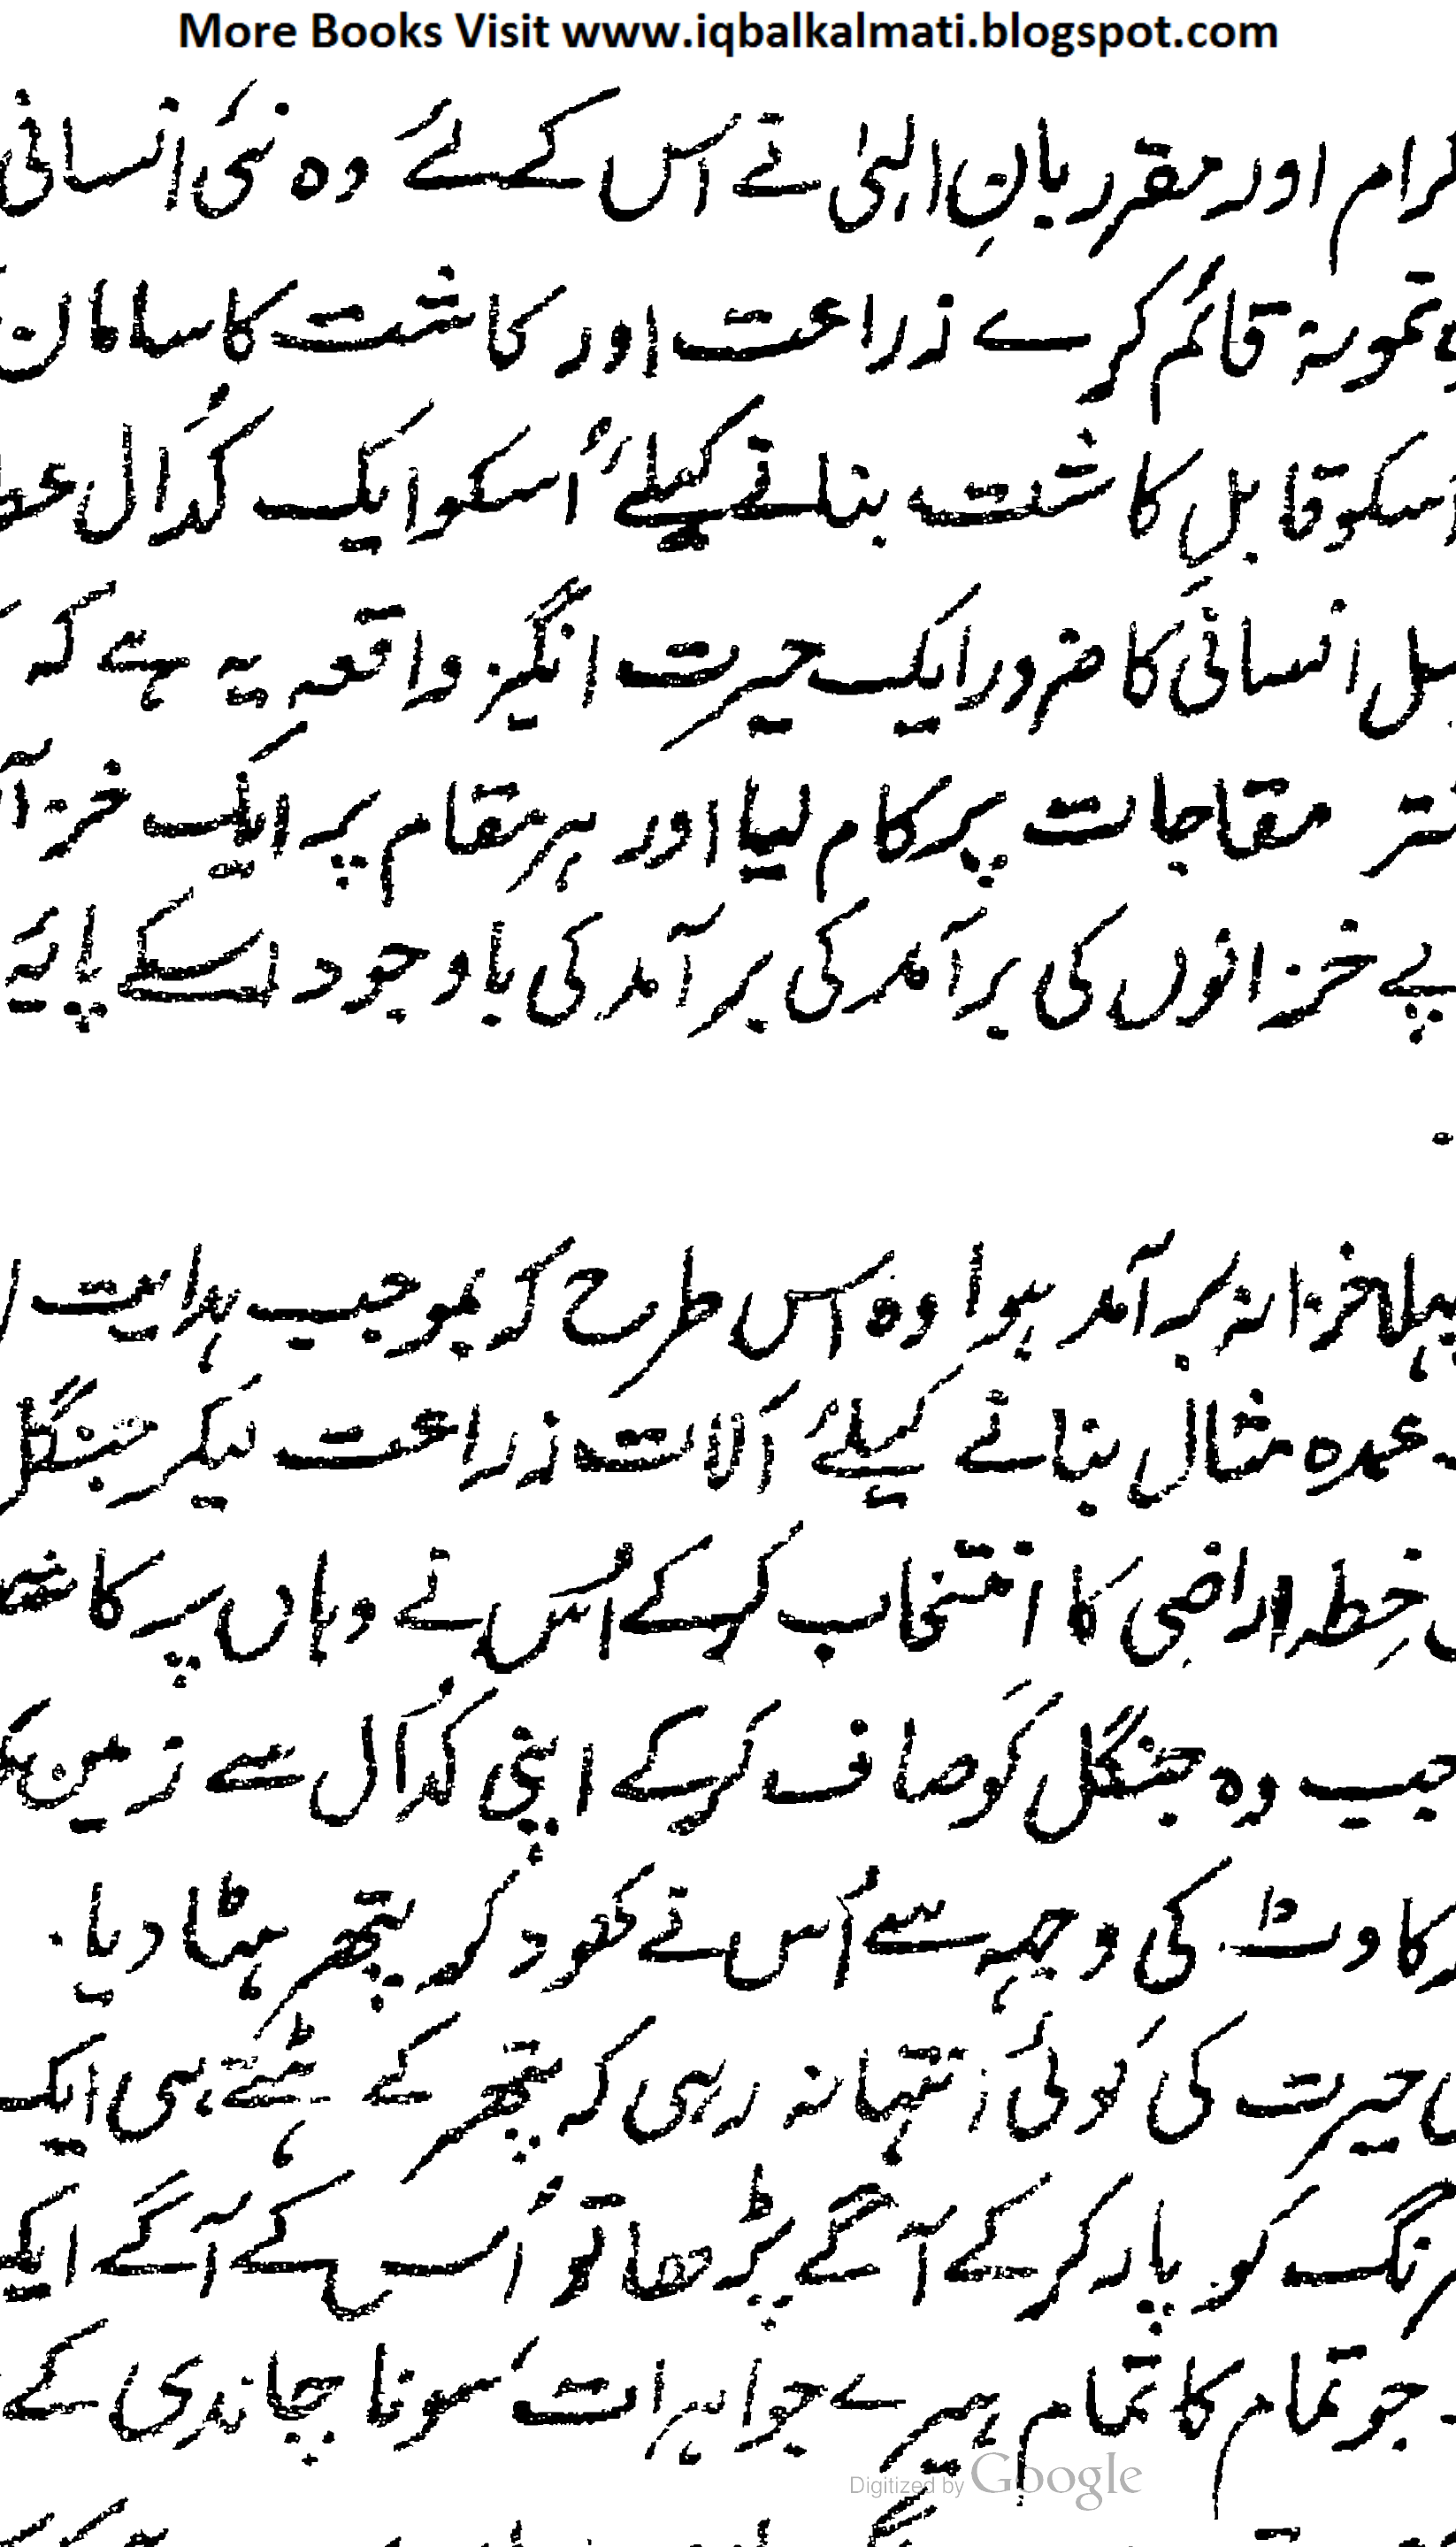 More Books Visit www.iqbalkalmati.blogspot.com
کرام اور مقربانِ الہیٰ نے اس کے لئے وہ نئی انسانی
نمونہ قائم کرے زراعت اور کاشت کا سامان
اسکو قابلِ کاشت بنانے کیلئے اُسکو ایک کُدال
انسانی کا ضرور ایک حیرت انگیز واقعہ یہ ہے کہ
مقاجات پر کام لیا اور ہر مقام پر ایک
خزانوں کی برآمد کی برآمد کی باوجود اسکے پایۂ
پہلا خزانہ برآمد ہوا وہ اس طرح کہ بموجب ہدایت
عمدہ مثال بنانے کیلئے آلات زراعت لیکر جنگل
خِطہ اراضی کا انتخاب کرکے اُس نے وہاں پر
جب وہ جنگل کو صاف کرکے اپنی کُدال سے زمین
رکاوٹ کی وجہہ سے اُس نے کھود کر پتھر ہٹا دیا.
حیرت کی کوئی انتہا نہ رہی کہ پتھر کے ہٹتے ہی ایک
کو پار کرکے آگے بڑھا تو اُس کے آگے ایک
جو تمام کا تمام ہیرے جواہرات سونا چاندی کے
Digitized by Google